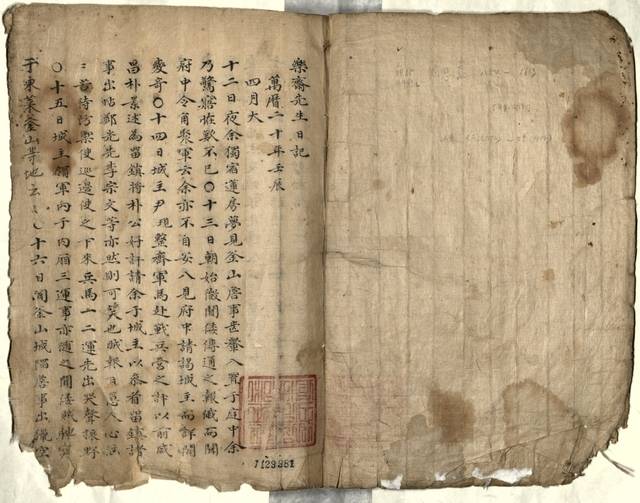 樂齋先生日記
萬曆二十年壬辰
四月大
十二日夜余獨宿蓮房夢見釜山 入置于庭中余
乃驚寤 歎不已○十三日朝始微聞倭傳通之報俄而聞
府中令角聚軍云余亦不自安入見府中請謁城主而詳聞
變奇○十四日城主尹現整齊軍馬赴戰兵營之計以前咸
昌朴景述爲留鎭將朴公好詳請余于城主以參省留鎭諸
事出帖鄭光先李宗文等亦然則可笑也賊報日急人心洶
〃苦待防禦使巡邊使之下來兵馬一二運先出哭聲振野
○十五日城主領軍 于內廂三運事亦隨之聞倭賊
于東萊釜山等地云〃○十六日聞釜山城陷 事出獵空
1123351